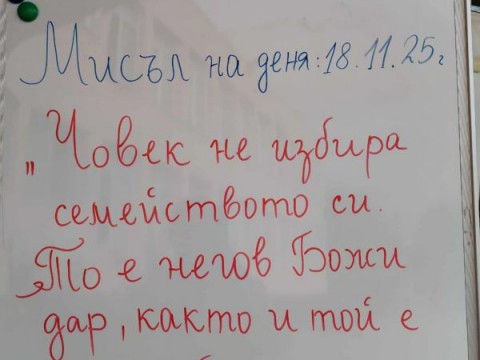 Мисъл на деня: 18.11.25г
„Човек не избира
семейството си.
То е негов Божи
дар, както и той е